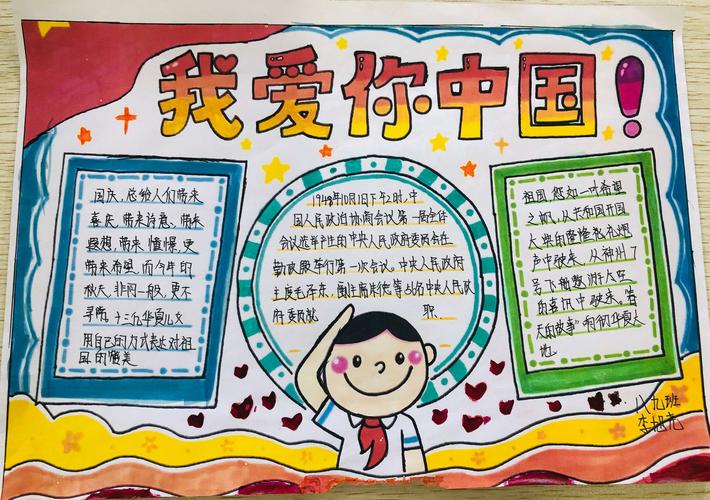 我爱你中国！
国庆，总给人们带来
喜庆，带来诗意，带来
遐想，带来憧憬，更
带来希望，而今年的
秋天，非同一般，更不
寻常，十三亿华夏儿女
用自己的方式表达对祖
国的赞美
1949年10月1日下午2时，中
国人民政治协商会议第一届全体
会议选举产生的中央人民政府委员会在
勤政殿举行第一次会议，中央人民政府
主席毛泽东，副主席朱德等56名中央人民政
府委员就 职
祖国，您如一叶希望
之帆，从共和国开国
大典的隆隆礼炮
声中驶来，从神州7
号飞船遨游太空
的喜讯中驶来，春
天的故事"
地
八九班